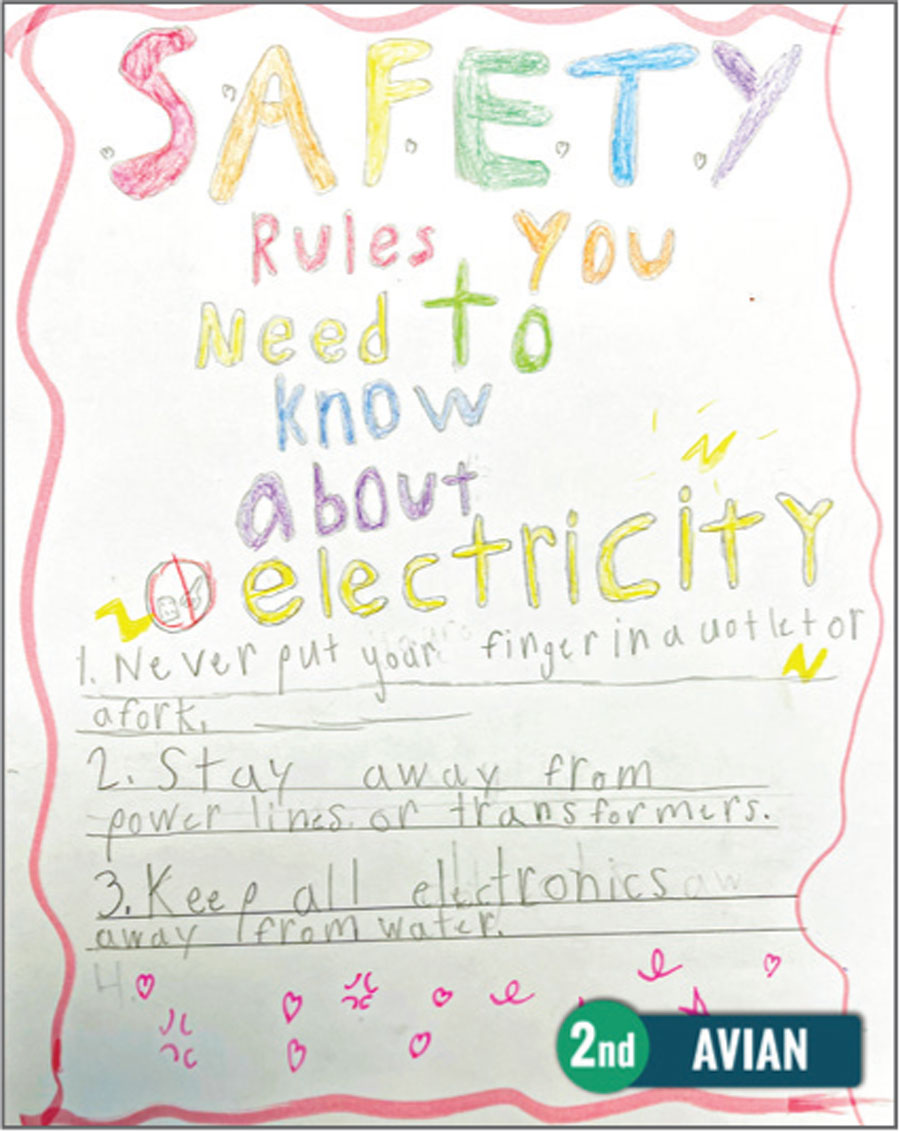 SAFETY
Rules You
Need to
know
about
electricity
1. Never put your finger in a uotlet or
a fork.
2. Stay away from
power lines or transformers.
3. Keep all electronics aw
away from water.
4.
2nd AVIAN